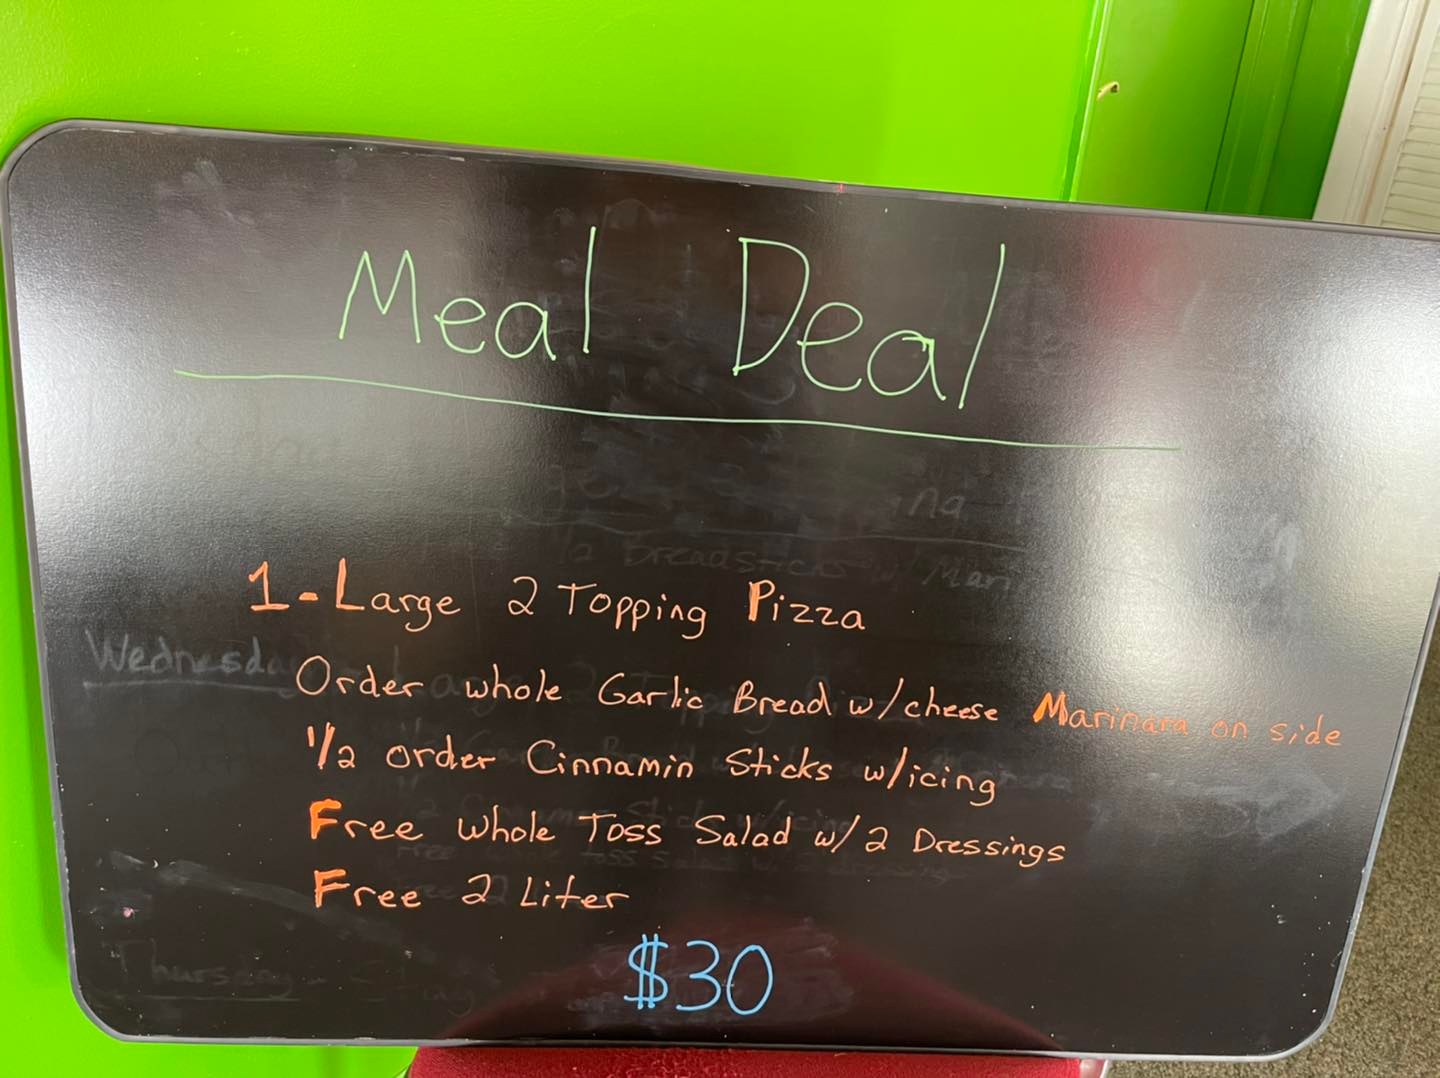 Meal Deal
1-Large 2 Topping Pizza
Order whole Garlic Bread w/cheese Marinara on side
1/2 order Cinnamin Sticks w/icing
Free whole Toss Salad w/2 Dressings
Free 2 Liter
$30
Wednesday
Thursday